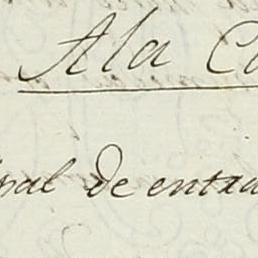 A la C
pal de entra